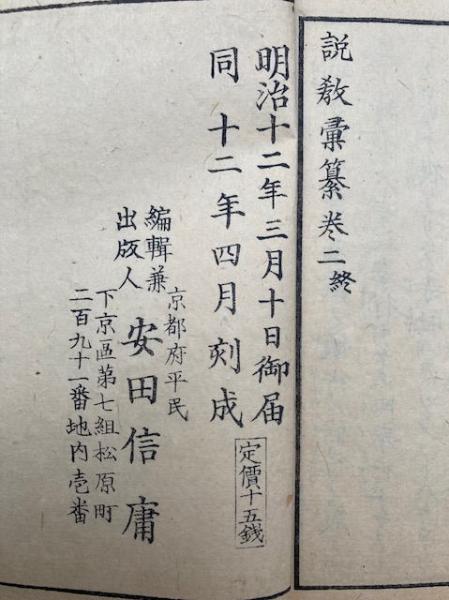 説教彙纂巻二終
明治十二年三月十日御届
同十二年四月刻成
定價十五銭
編輯兼
出版人
京都府平民
安田信庸
下京區第七組松原町
二百九十一番地内壱番